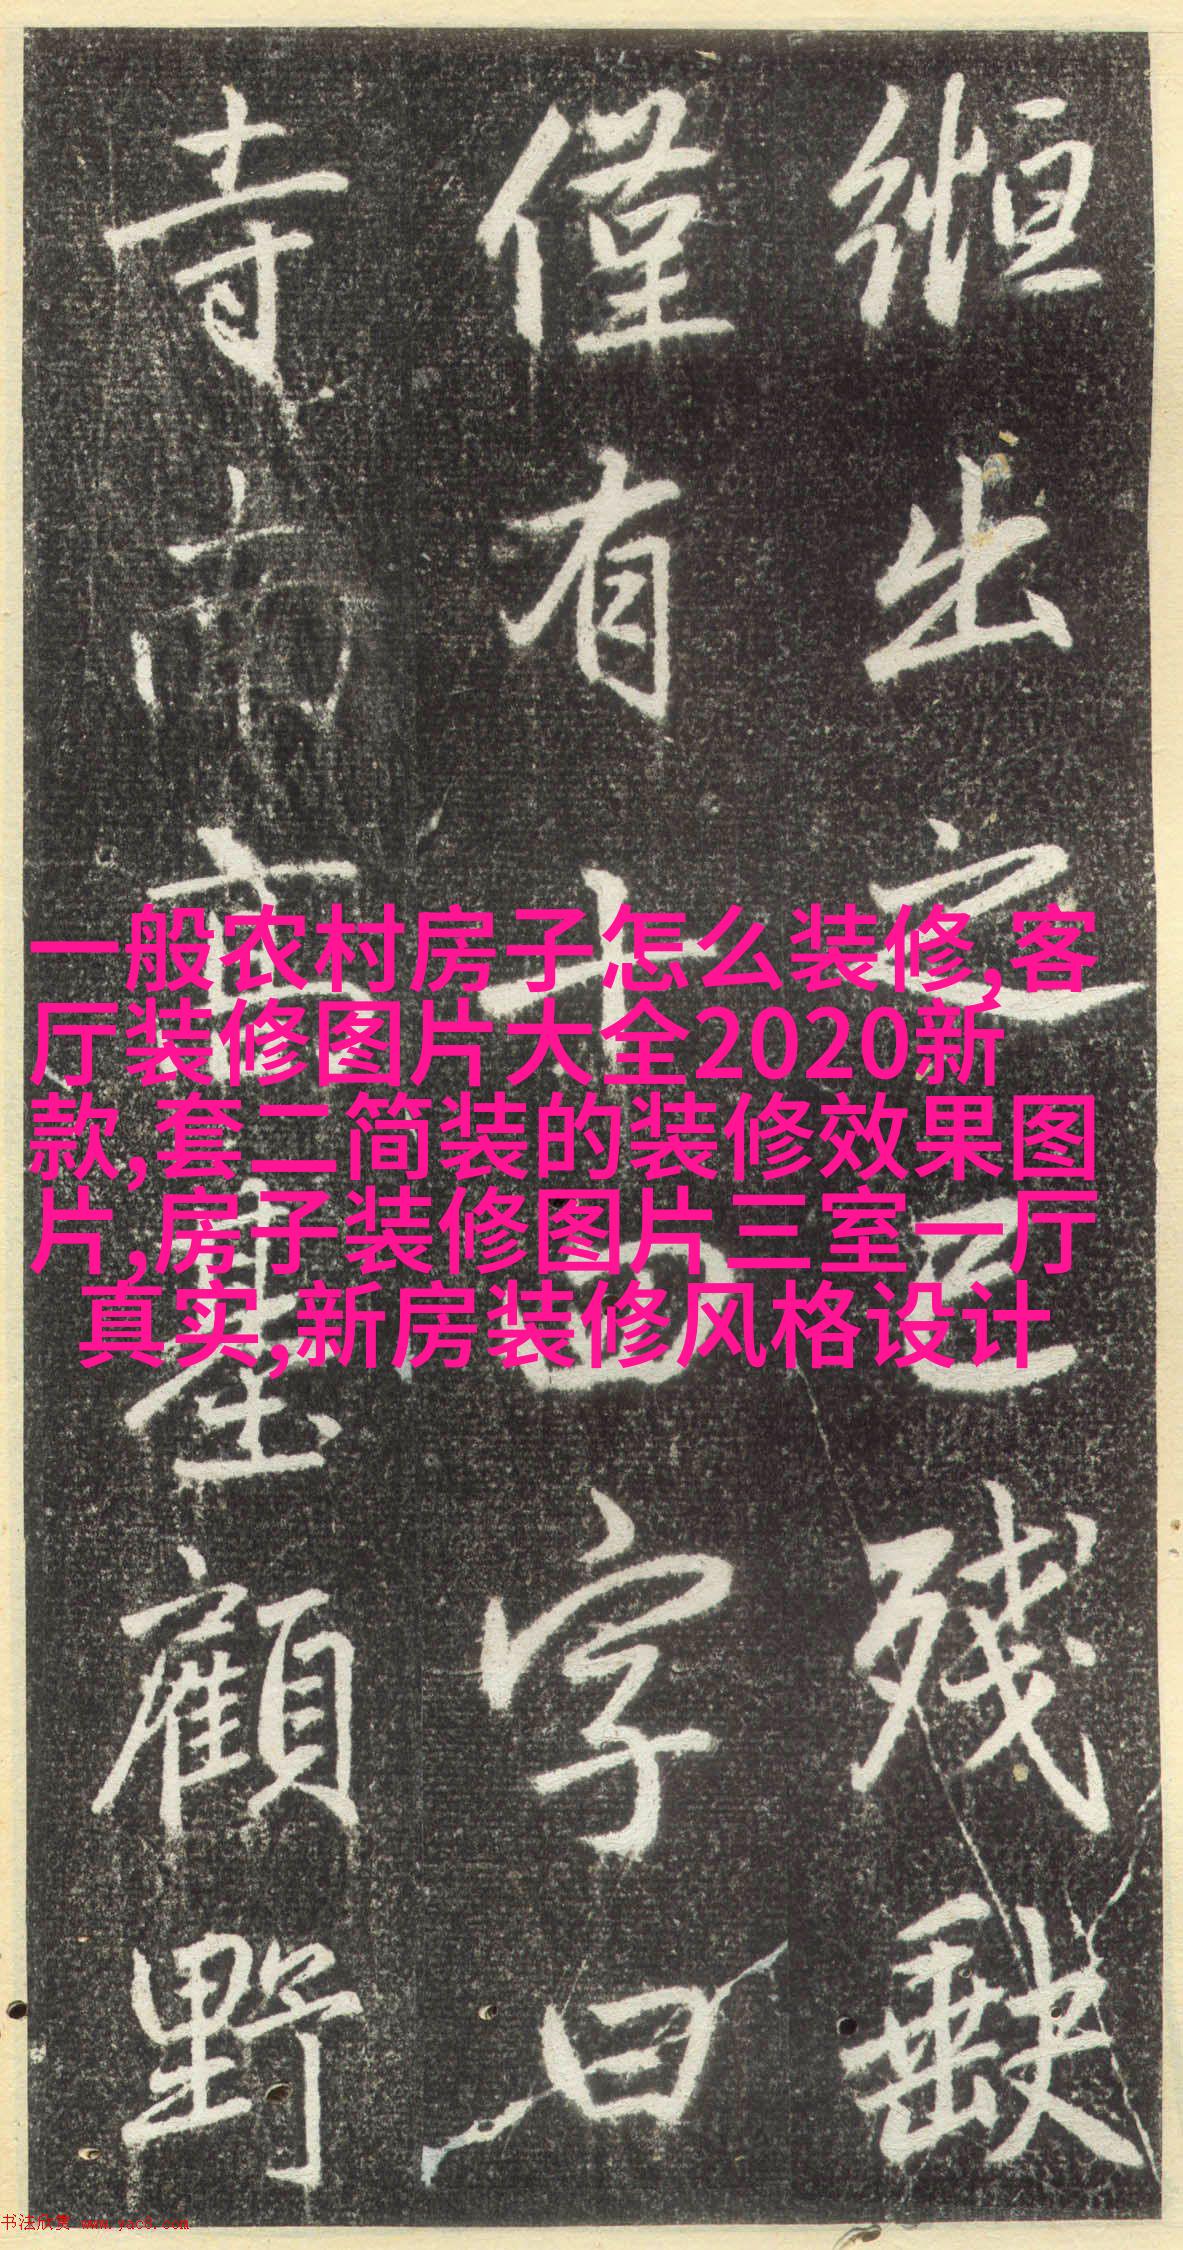 縆出之已残缺
僅有十四字曰
寺而臺顧野
一般农村房子怎么装修,客
厅装修图片大全2020新
款,套二简装的装修效果图
片,房子装修图片三室一厅
真实,新房装修风格设计
书法欣赏 www.yac8.com